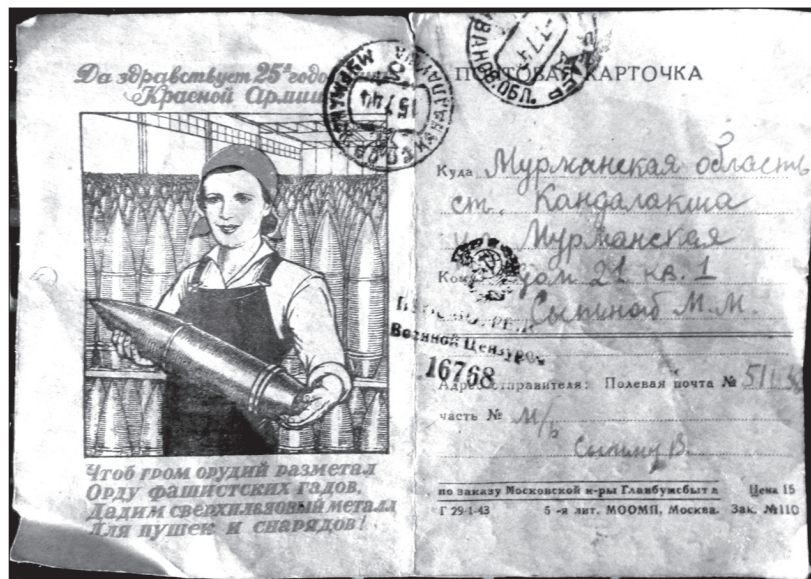 Да здравствует 25ая
Красной Армии
Чтоб гром орудий разметал
Орду фашистских гадов,
Дадим сверхплановый металл
Для пушек и снарядов!
ПОЧТОВАЯ КАРТОЧКА
Куда Мурманская область
ст. Кандалакша
ул. Мурманская
Кому дом 21 кв. 1
М.М.
Военной Цензурой
16768
Адрес отправителя: Полевая почта №
часть № м/р
Сыпину В.
по заказу Московской к-ры Главбумсбыта Цена 15
Г 29-1-43 5-я лит. МООМП, Москва. Зак. №110